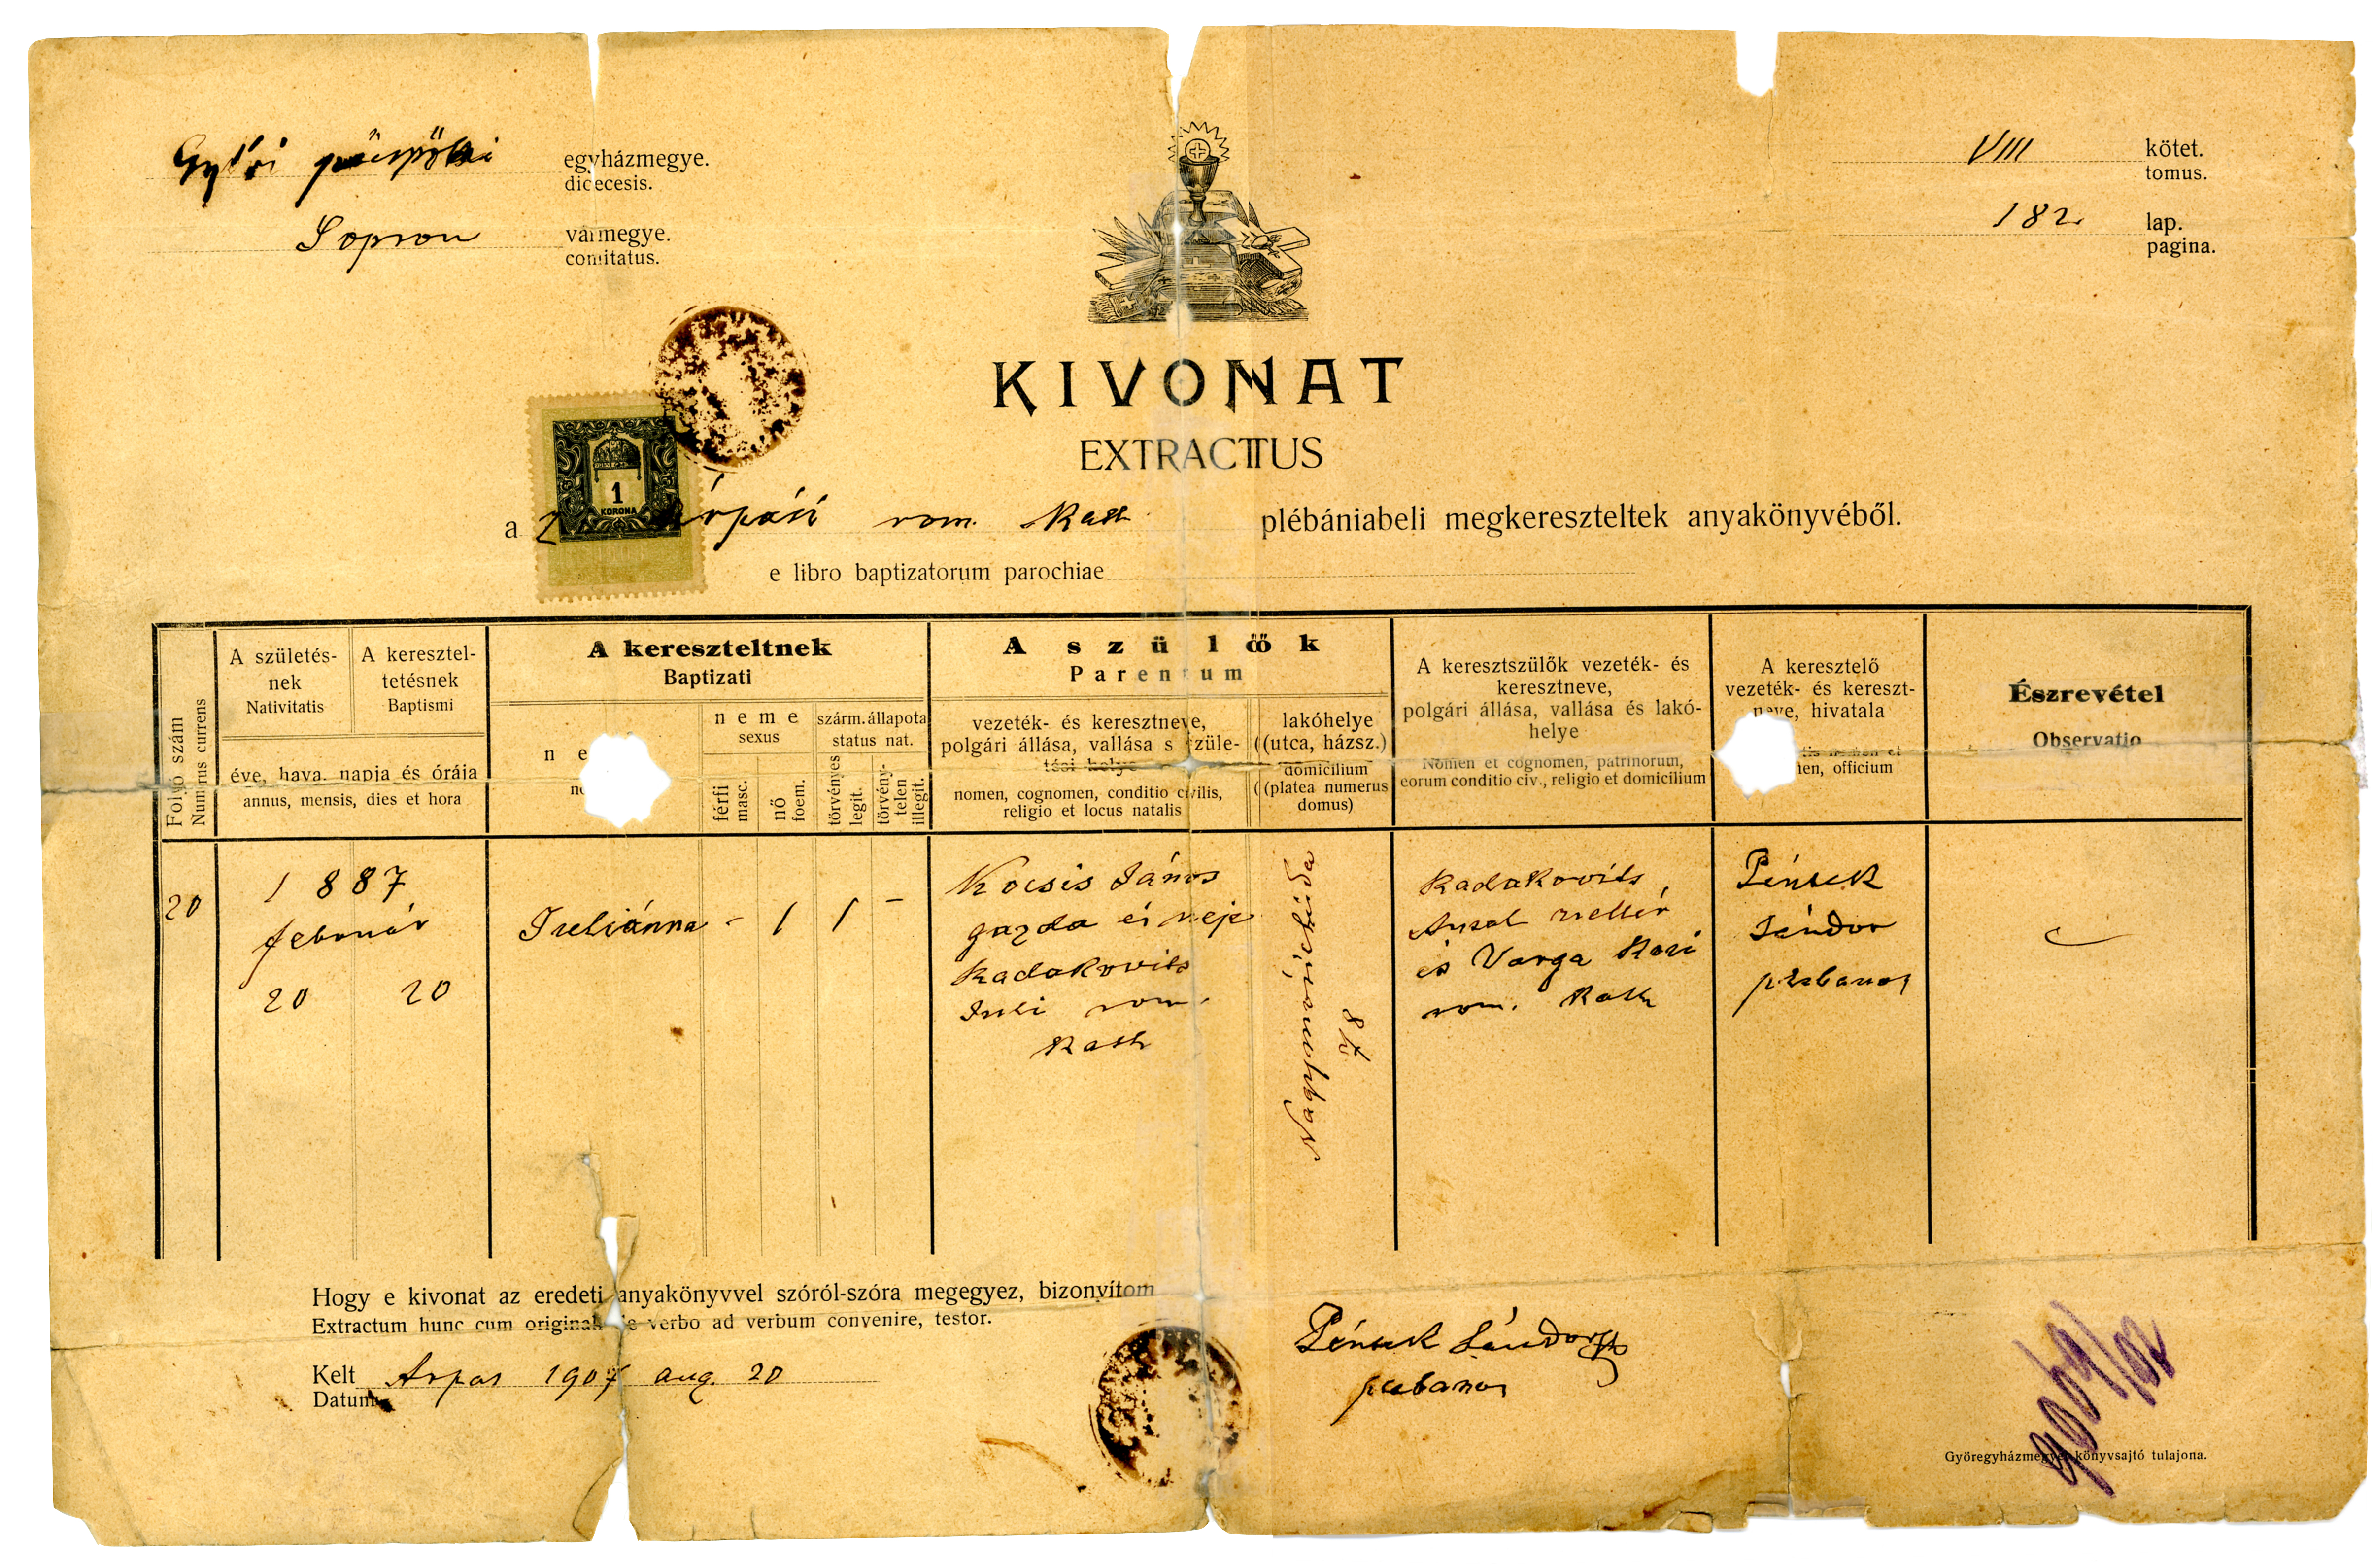 Győri püspöki egyházmegye.
dioecesis.
Sopron vármegye.
comitatus.
VIII kötet.
tomus.
182 lap.
pagina.
KIVONAT
EXTRACTUS
1
KORONA
a z árpási rom. kath plébániabeli megkereszteltek anyakönyvéből.
e libro baptizatorum parochiae
Folyó szám
Numerus currens
A születés-
nek
Nativitatis
A keresztel-
tetésnek
Baptismi
éve, hava, napja és órája
annus, mensis, dies et hora
A kereszteltnek
Baptizati
n e
neme
sexus
férfi
masc.
nő
foem.
szárm. állapota
status nat.
törvényes
legit.
törvény-
telen
illegit.
A szülők
Parentum
vezeték- és keresztneve,
polgári állása, vallása s szüle-
tési helye
nomen, cognomen, conditio civilis,
religio et locus natalis
lakóhelye
(utca, házsz.)
domicilium
(platea numerus
domus)
A keresztszülők vezeték- és
keresztneve,
polgári állása, vallása és lakó-
helye
Nomen et cognomen, patrinorum,
eorum conditio civ., religio et domicilium
A keresztelő
vezeték- és kereszt-
neve, hivatala
men, officium
Észrevétel
Observatio
20
1887
február
20 20
Juliánna - 1 1 -
Kocsis János
gazda és neje
Radakovits
Juli rom.
kath
78
Radakovits
Antal zsellér
és Varga Kati
rom. kath
Péntek
Sándor
plebanos
Hogy e kivonat az eredeti anyakönyvvel szóról-szóra megegyez, bizonyítom
Extractum hunc cum originali de verbo ad verbum convenire, testor.
Kelt Árpás 1907 aug. 20
Datum
Péntek Sándor
plebanos
Györegyházmegyei könyvsajtó tulajona.